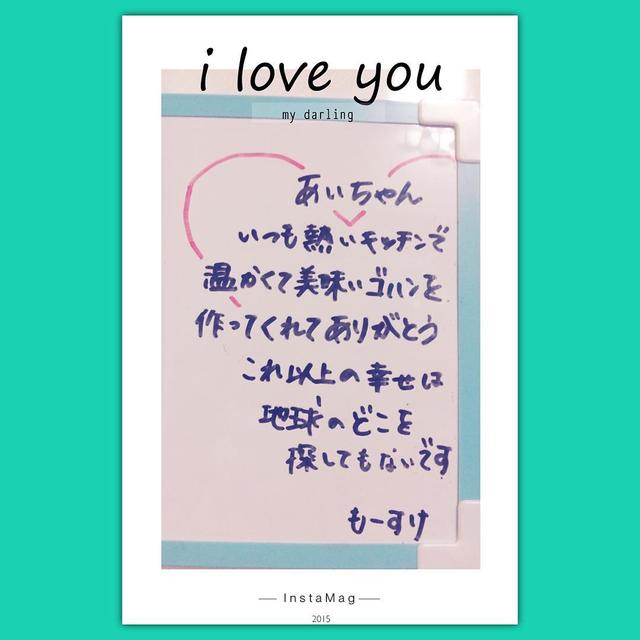 i love you
my darling
あいちゃん
いつも熱いキッチンで
温かくて美味いゴハンを
作ってくれてありがとう
これ以上の幸せは
地球のどこを
探してもないです
もーすけ
InstaMag
2015